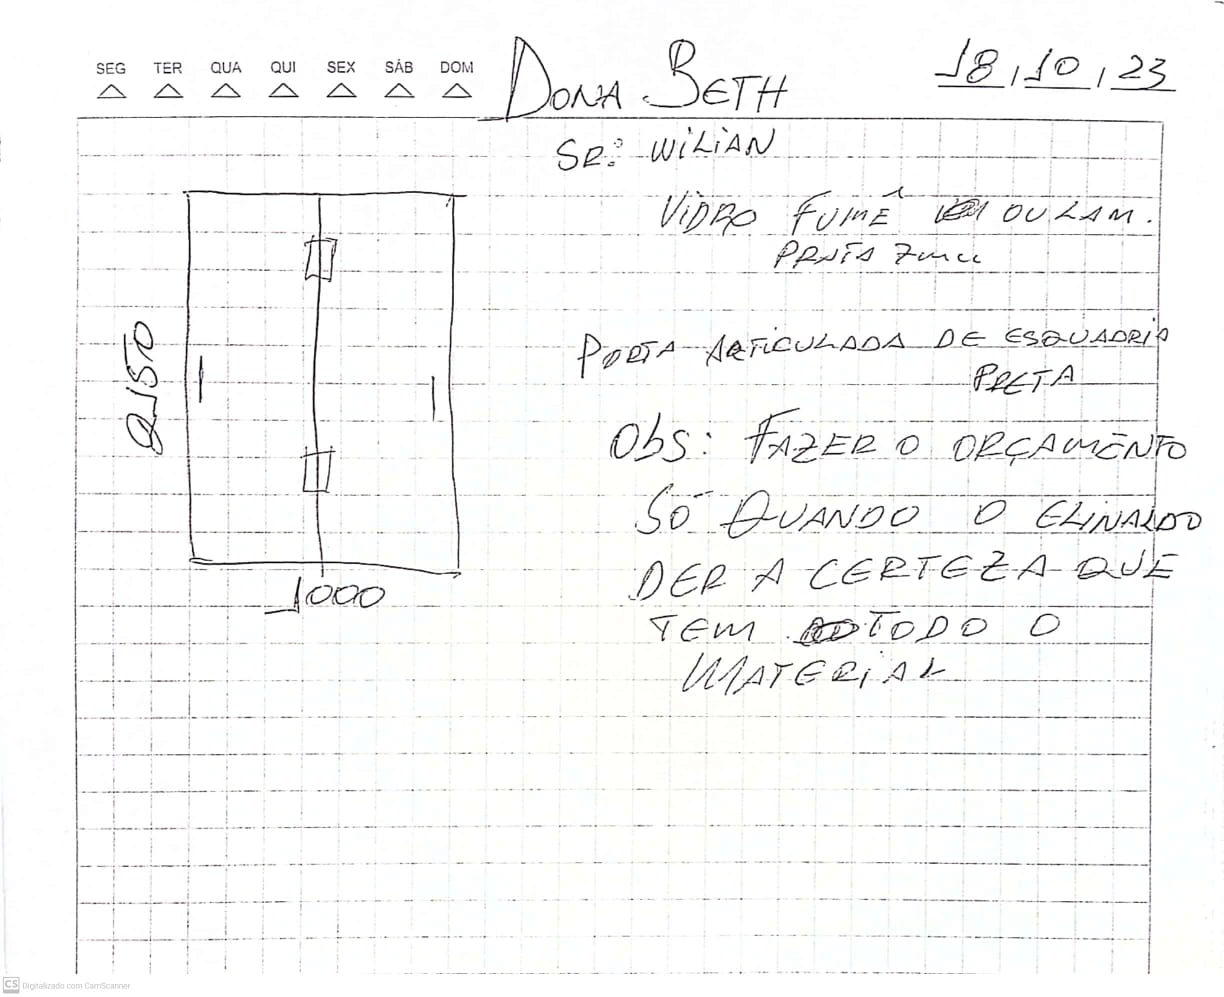 SEG TER QUA QUI SEX SÁB DOM
DONA BETH
18/10/23
SR: WILIAN
VIDRO FUMÊ OU LAM.
PRATA 7mm
2150
PORTA ARTICULADA DE ESQUADRIA
PRETA
Obs: FAZER O ORÇAMENTO
SÓ QUANDO O ELINALDO
DER A CERTEZA QUE
1000
TEM TODO O
MATERIAL
CS Digitalizado com CamScanner